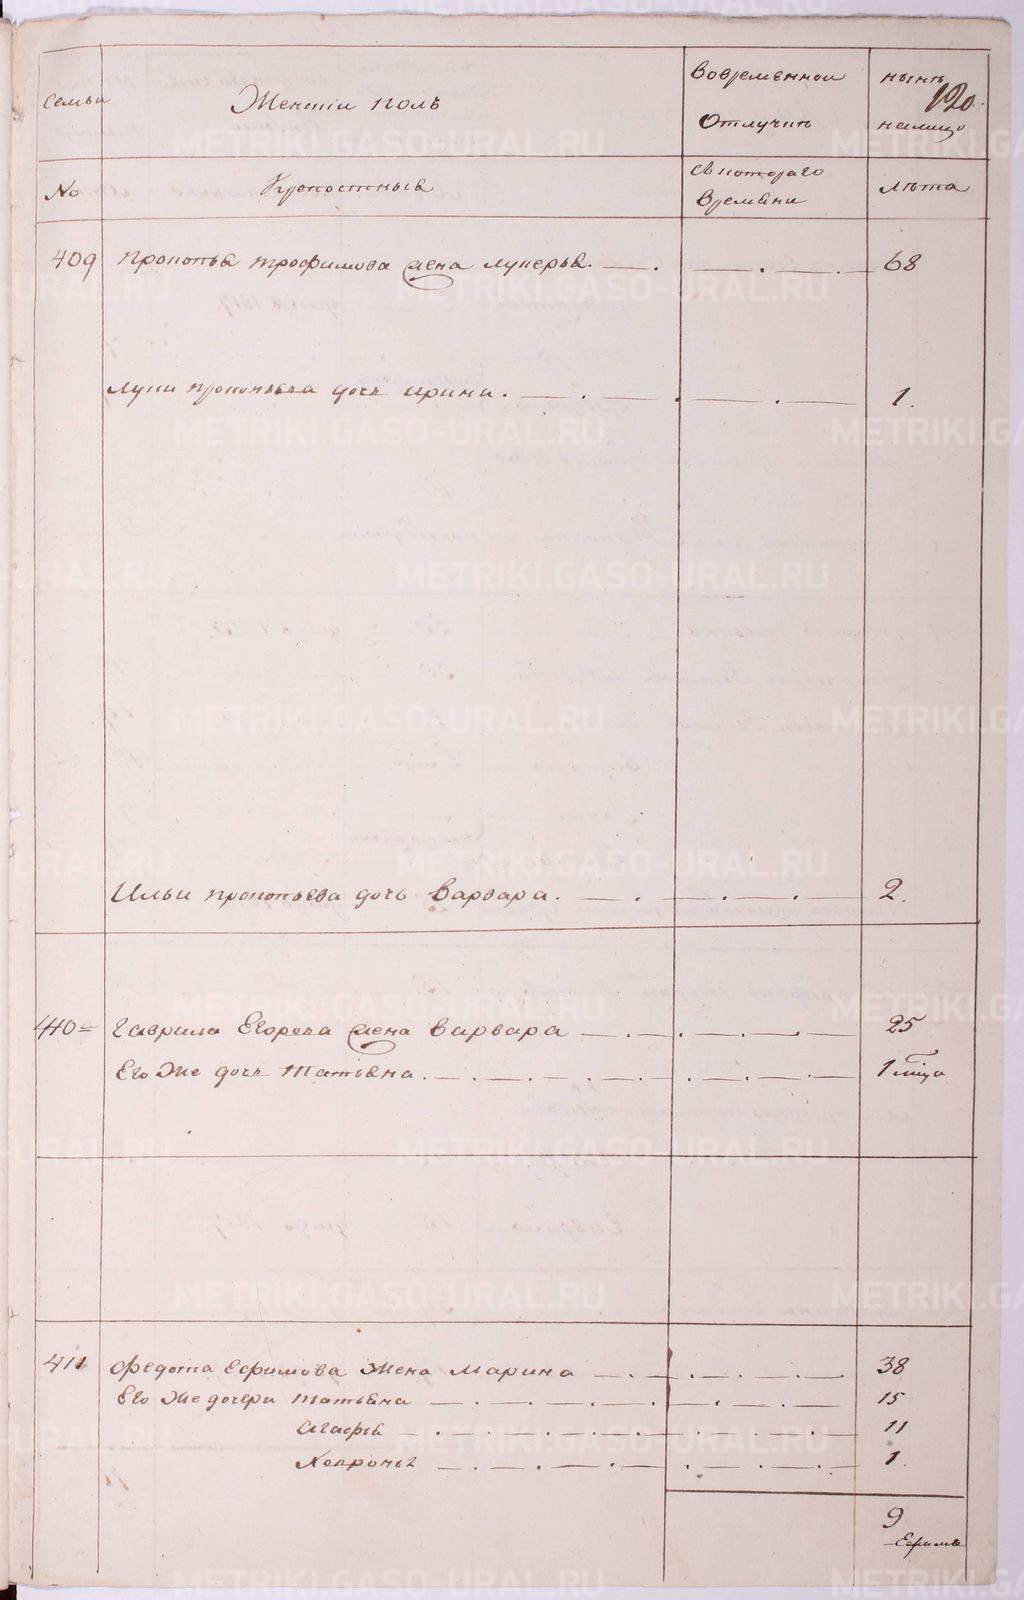 семьи
Женскiй полъ
Во временной
Отлучкѣ
нынѣ
120.
на лицо
No
Крепостныя
Съ котораго
Времѣни
Лѣта
409 Прокопья трофимова жена лукерья. 68
Луки прокопьева дочь ирина. 1.
Ильи прокопьева дочь варвара. 2.
410 = Гаврила Егорева жена варвара 25
Его Же дочь татьяна. 1 мѣца
411 Федота Ефимова Жена Марина 38
Его Же дочери татьяна 15
агафья 11
Хавронья 1.
9
METRIKI.GASO-URAL.RU